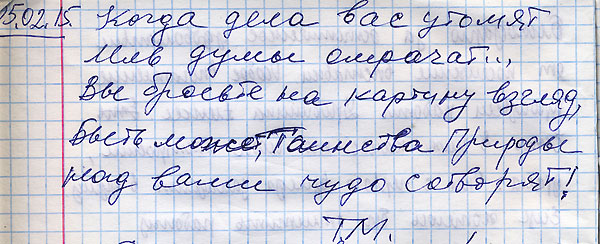 15.02.15. Когда дела вас утомят
Иль думы омрачат...,
Вы бросьте на картину взгляд,
Быть может, Таинства Природы
над вами чудо сотворят!
Т.М.